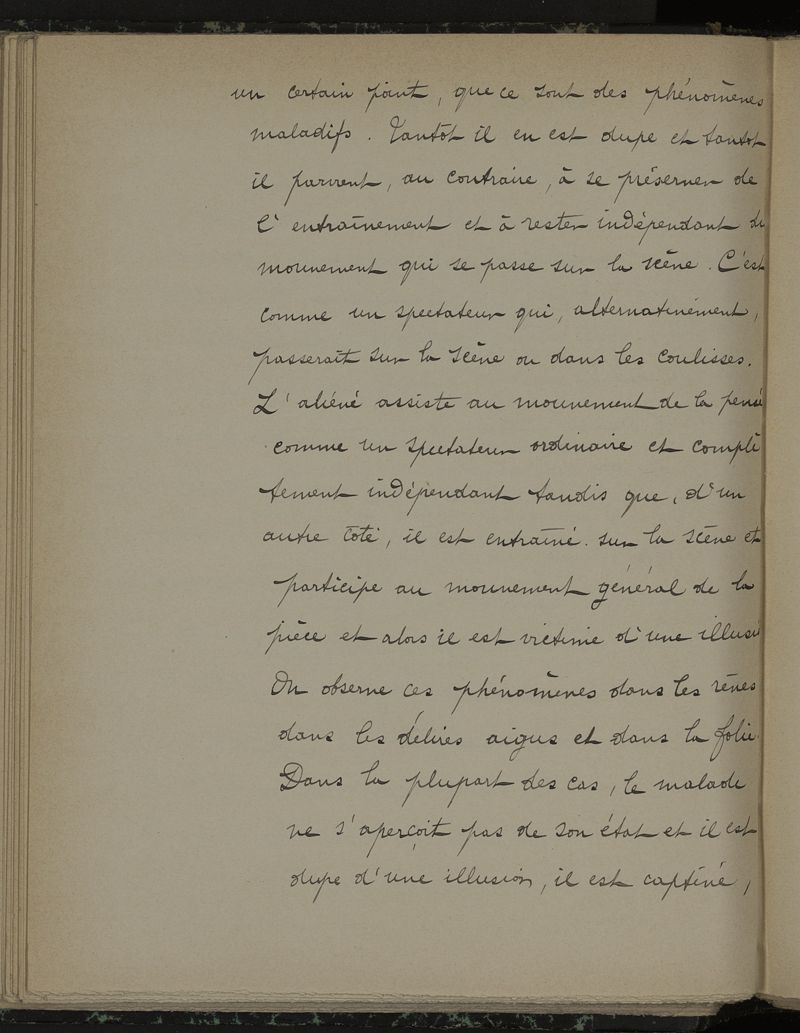 un certain point, que ce sont des phénomènes
maladifs. Tantôt il en est dupe et tantot
il parvient, au contraire, à se préserver de
l'entraînement et à rester indépendant du
mouvement qui se passe sur la scène. C'est
comme un spectateur qui, alternativement,
passerait sur la scène ou dans les coulisses.
L'aliéné assiste au mouvement de la pensé
comme un spectateur ordinaire et complè
tement indépendant tandis que, d'un
autre côté, il est entraîné sur la scène et
participe au mouvement général de la
pièce et alors il est victime d'une illusi
On observe ces phénomènes dans les rêves
dans les délires aigus et dans la folie.
Dans la plupart des cas, le malade
ne s'aperçoit pas de son état et il est
dupe d'une illusion, il est captivé,